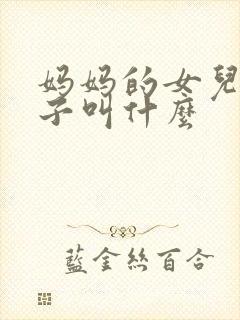 妈妈的女兒
子叫什麼
藍金絲百合